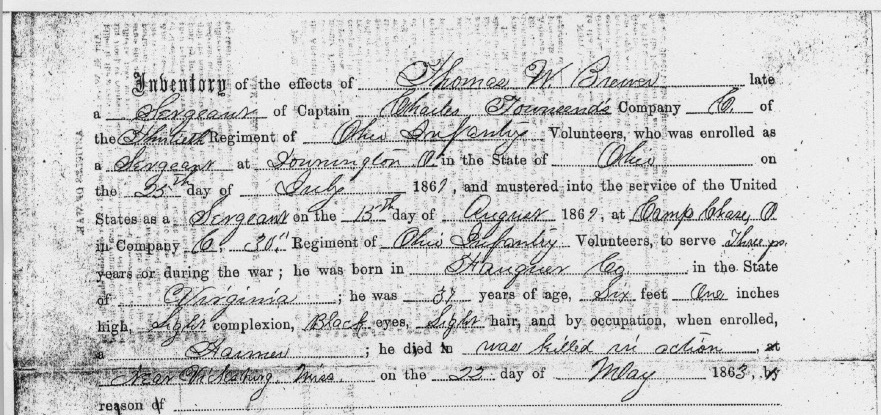 Inventory of the effects of Thomas W. Brewer late
a Sergeant of Captain Charles Townsends Company C. of
the Thirtieth Regiment of Ohio Infantry Volunteers, who was enrolled as
a Sergeant at O. in the State of Ohio on
the 25th day of July 1861, and mustered into the service of the United
States as a Sergeant on the 15th day of August 1861, at Camp Chase, O
in Company C, 30th Regiment of Ohio Infantry Volunteers, to serve Three
years or during the war; he was born in Fauquier Co in the State
of Virginia; he was 37 years of age, Six feet One inches
high, Light complexion, Black eyes, Light hair, and by occupation, when enrolled,
a Farmer; he died in was killed in action, at
Near Vicksburg, Miss. on the 22 day of May 1863, by
reason of